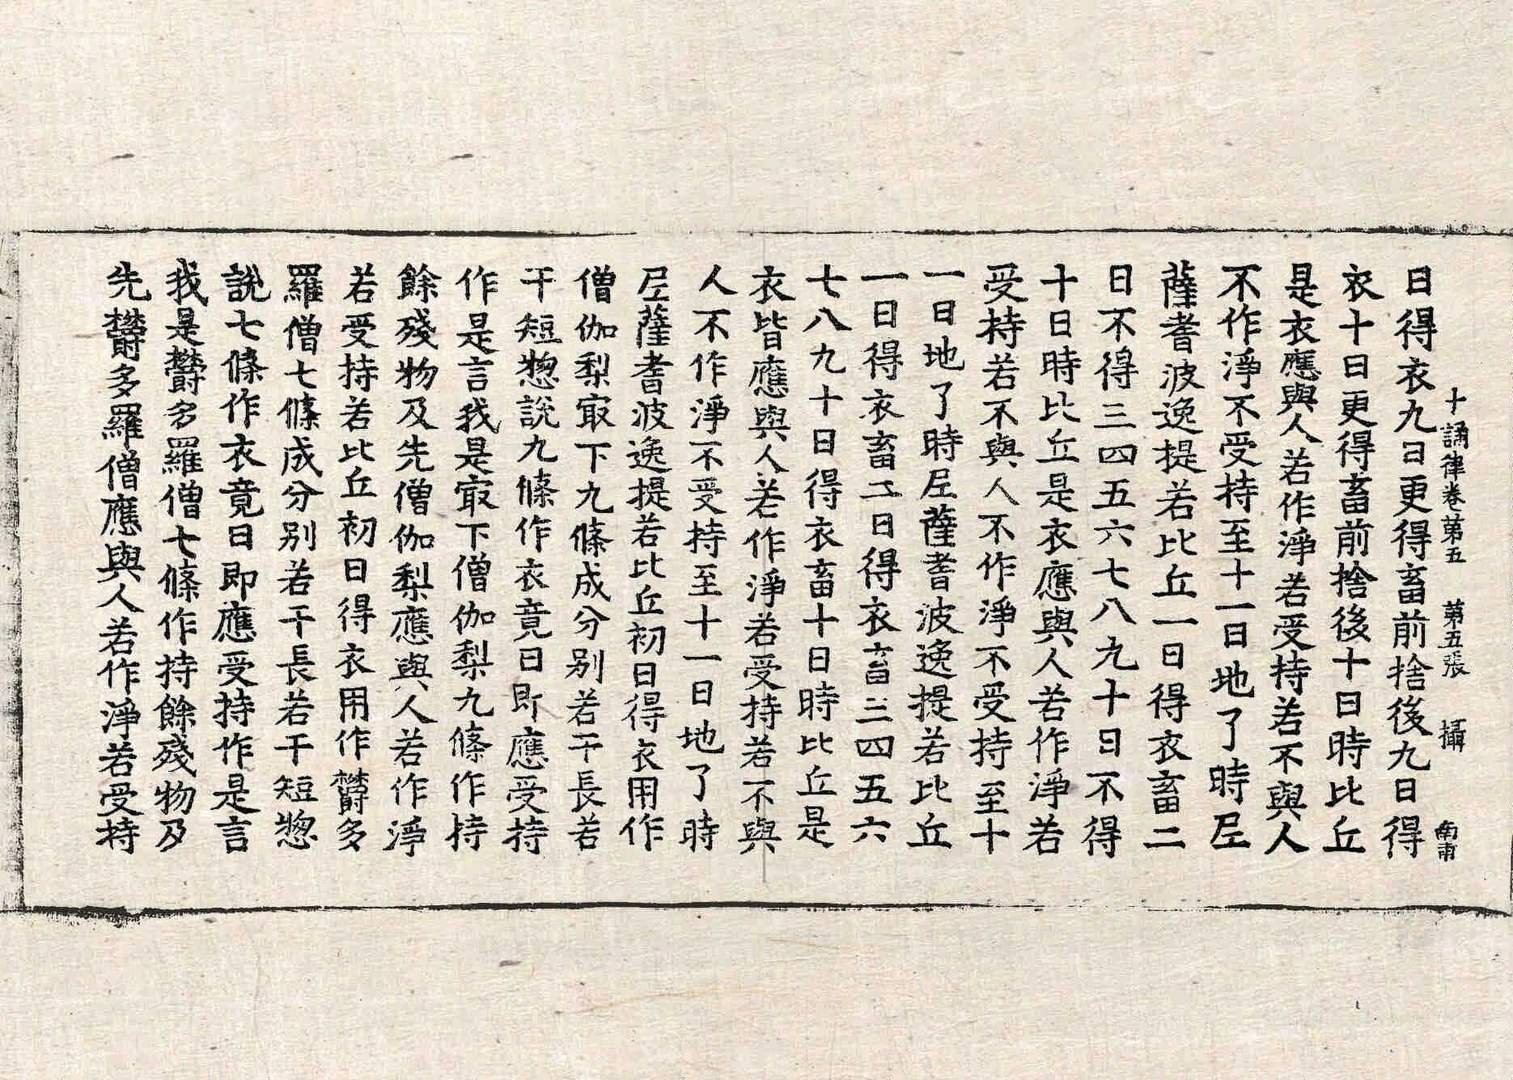 十誦律卷第五　第五張　攝
日得衣九日更得畜前捨後九日得
衣十日更得畜前捨後十日時比丘
是衣應與人若作淨若受持若不與人
不作淨不受持至十一日地了時尼
薩耆波逸提若比丘一日得衣畜二
日不得三四五六七八九十日不得
十日時比丘是衣應與人若作淨若
受持若不與人不作淨不受持至十
一日地了時尼薩耆波逸提若比丘
一日得衣畜二日得衣畜三四五六
七八九十日得衣畜十日時比丘是
衣皆應與人若作淨若受持若不與
人不作淨不受持至十一日地了時
尼薩耆波逸提若比丘初日得衣用作
僧伽梨㝡下九條成分別若干長若
干短惣說九條作衣竟日即應受持
作是言我是㝡下僧伽梨九條作持
餘殘物及先僧伽梨應與人若作淨
若受持若比丘初日得衣用作欝多
羅僧七條成分別若干長若干短惣
說七條作衣竟日即應受持作是言
我是欝多羅僧七條作持餘殘物及
先欝多羅僧應與人若作淨若受持